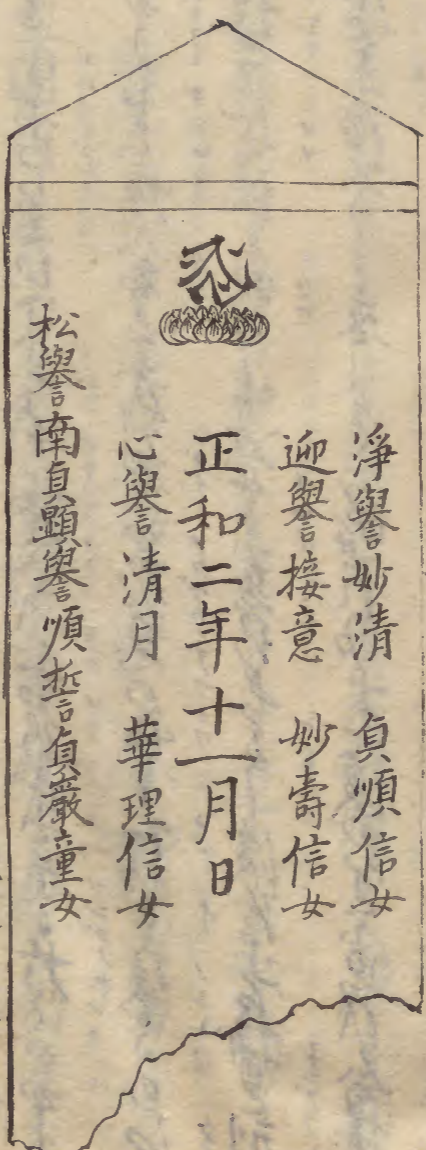 淨譽妙清　貞順信女
迎譽接意　妙壽信女
正和二年十一月日
心譽清月　華理信女
松譽南貞顕譽順誓貞嚴童女